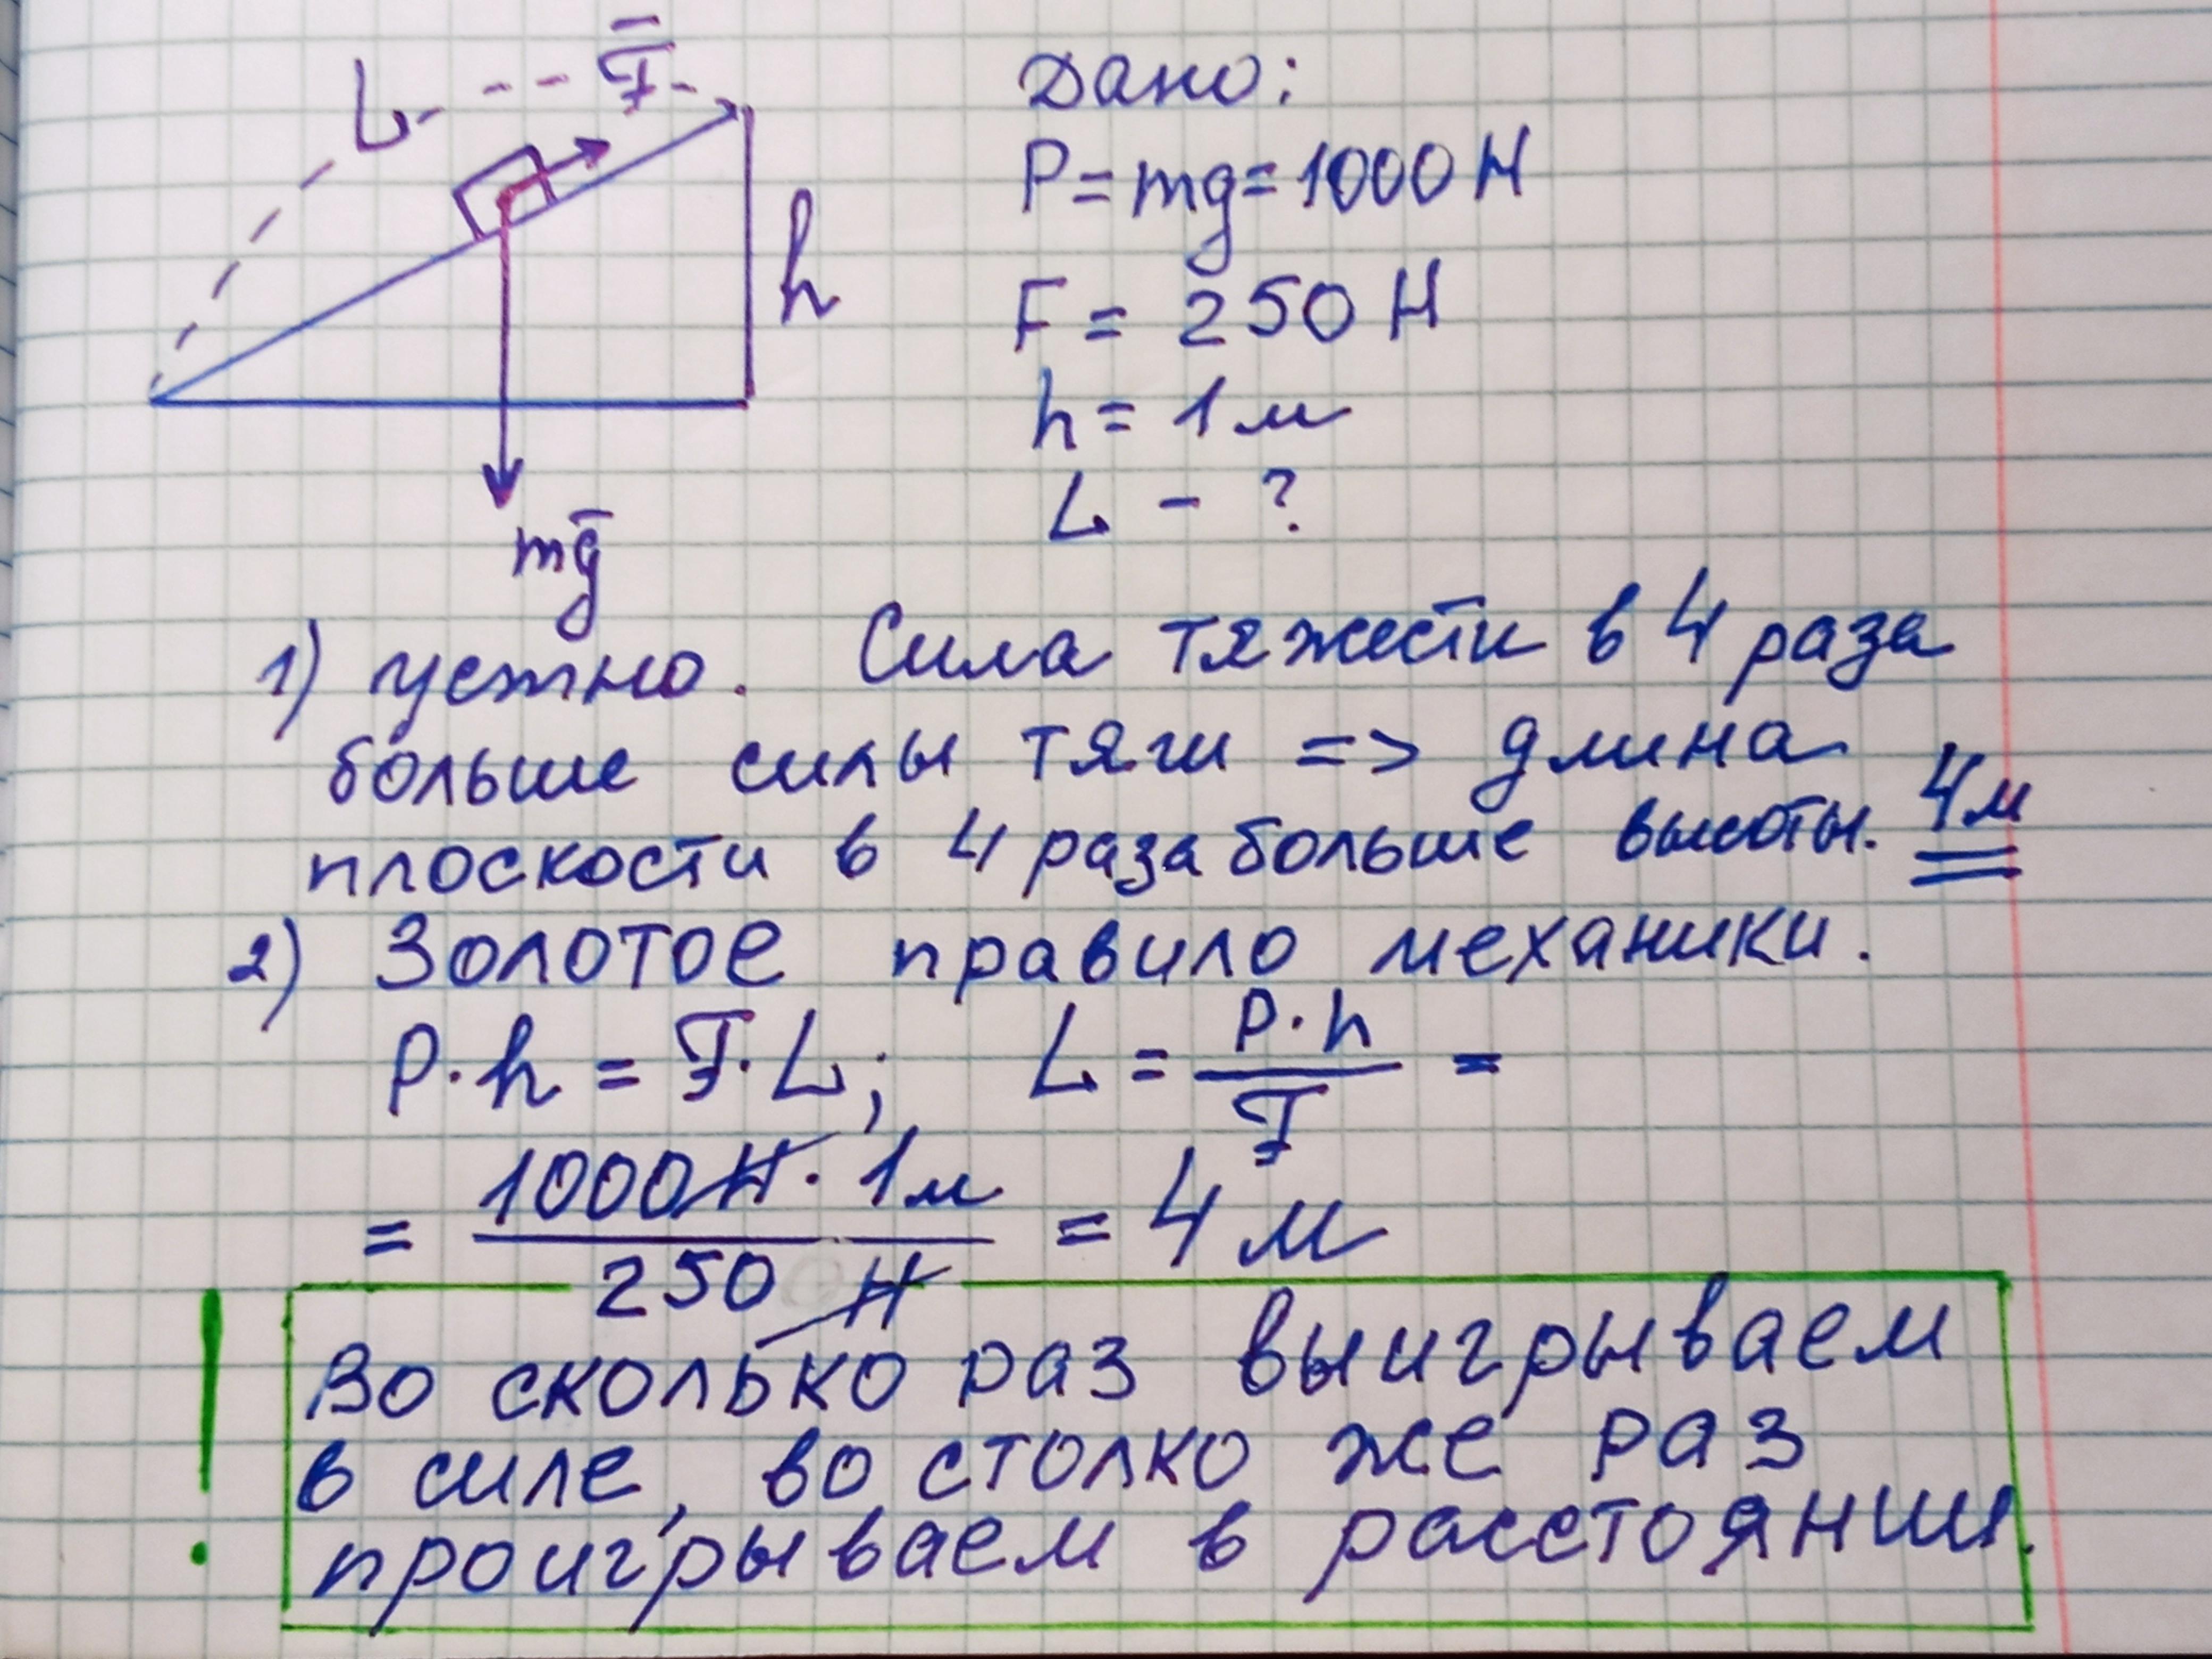 L F̄
h
mḡ
Дано:
P = mg = 1000 Н
F = 250 Н
h = 1 м
L - ?
1) устно. Сила тяжести в 4 раза
больше силы тяги => длина
плоскости в 4 раза больше высоты. 4м
2) Золотое правило механики.
P·h = F·L; L = P·h / F =
= 1000Н · 1м / 250 Н = 4 м
! Во сколько раз выигрываем
в силе, во столко же раз
проигрываем в расстоянии.